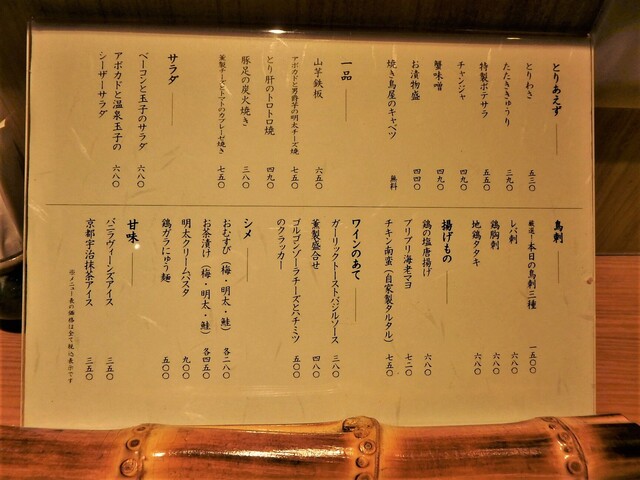 とりあえず
とりわさ 五三〇
たたききゅうり 三九〇
特製ポテサラ 五五〇
チャンジャ 四九〇
蟹味噌 四九〇
お漬物盛 四四〇
焼き鳥屋のキャベツ 無料
一品
山芋鉄板 六五〇
アボカドと男爵芋の明太チーズ焼 七五〇
とり肝のトロトロ焼 四九〇
豚足の炭火焼き 三八〇
薫製チーズとトマトのカプレーゼ焼き 七五〇
サラダ
ベーコンと玉子のサラダ 六八〇
アボカドと温泉玉子の
シーザーサラダ 六八〇
鳥刺
厳選！本日の鳥刺三種 一五〇〇
レバ刺 六八〇
鶏胸刺 六八〇
地鶏タタキ 六八〇
揚げもの
鶏の塩唐揚げ 六八〇
プリプリ海老マヨ 七二〇
チキン南蛮（自家製タルタル） 七五〇
ワインのあて
ガーリックトーストバジルソース 三八〇
薫製盛合せ 四八〇
ゴルゴンゾーラチーズとハチミツ
のクラッカー 五〇〇
シメ
おむすび（梅・明太・鮭） 各二八〇
お茶漬け（梅・明太・鮭） 各四五〇
明太クリームパスタ 九〇〇
鶏ガラにゅう麺 五〇〇
甘味
バニラヴィーンズアイス 三五〇
京都宇治抹茶アイス 三五〇
※メニュー表の価格は全て税込表示です